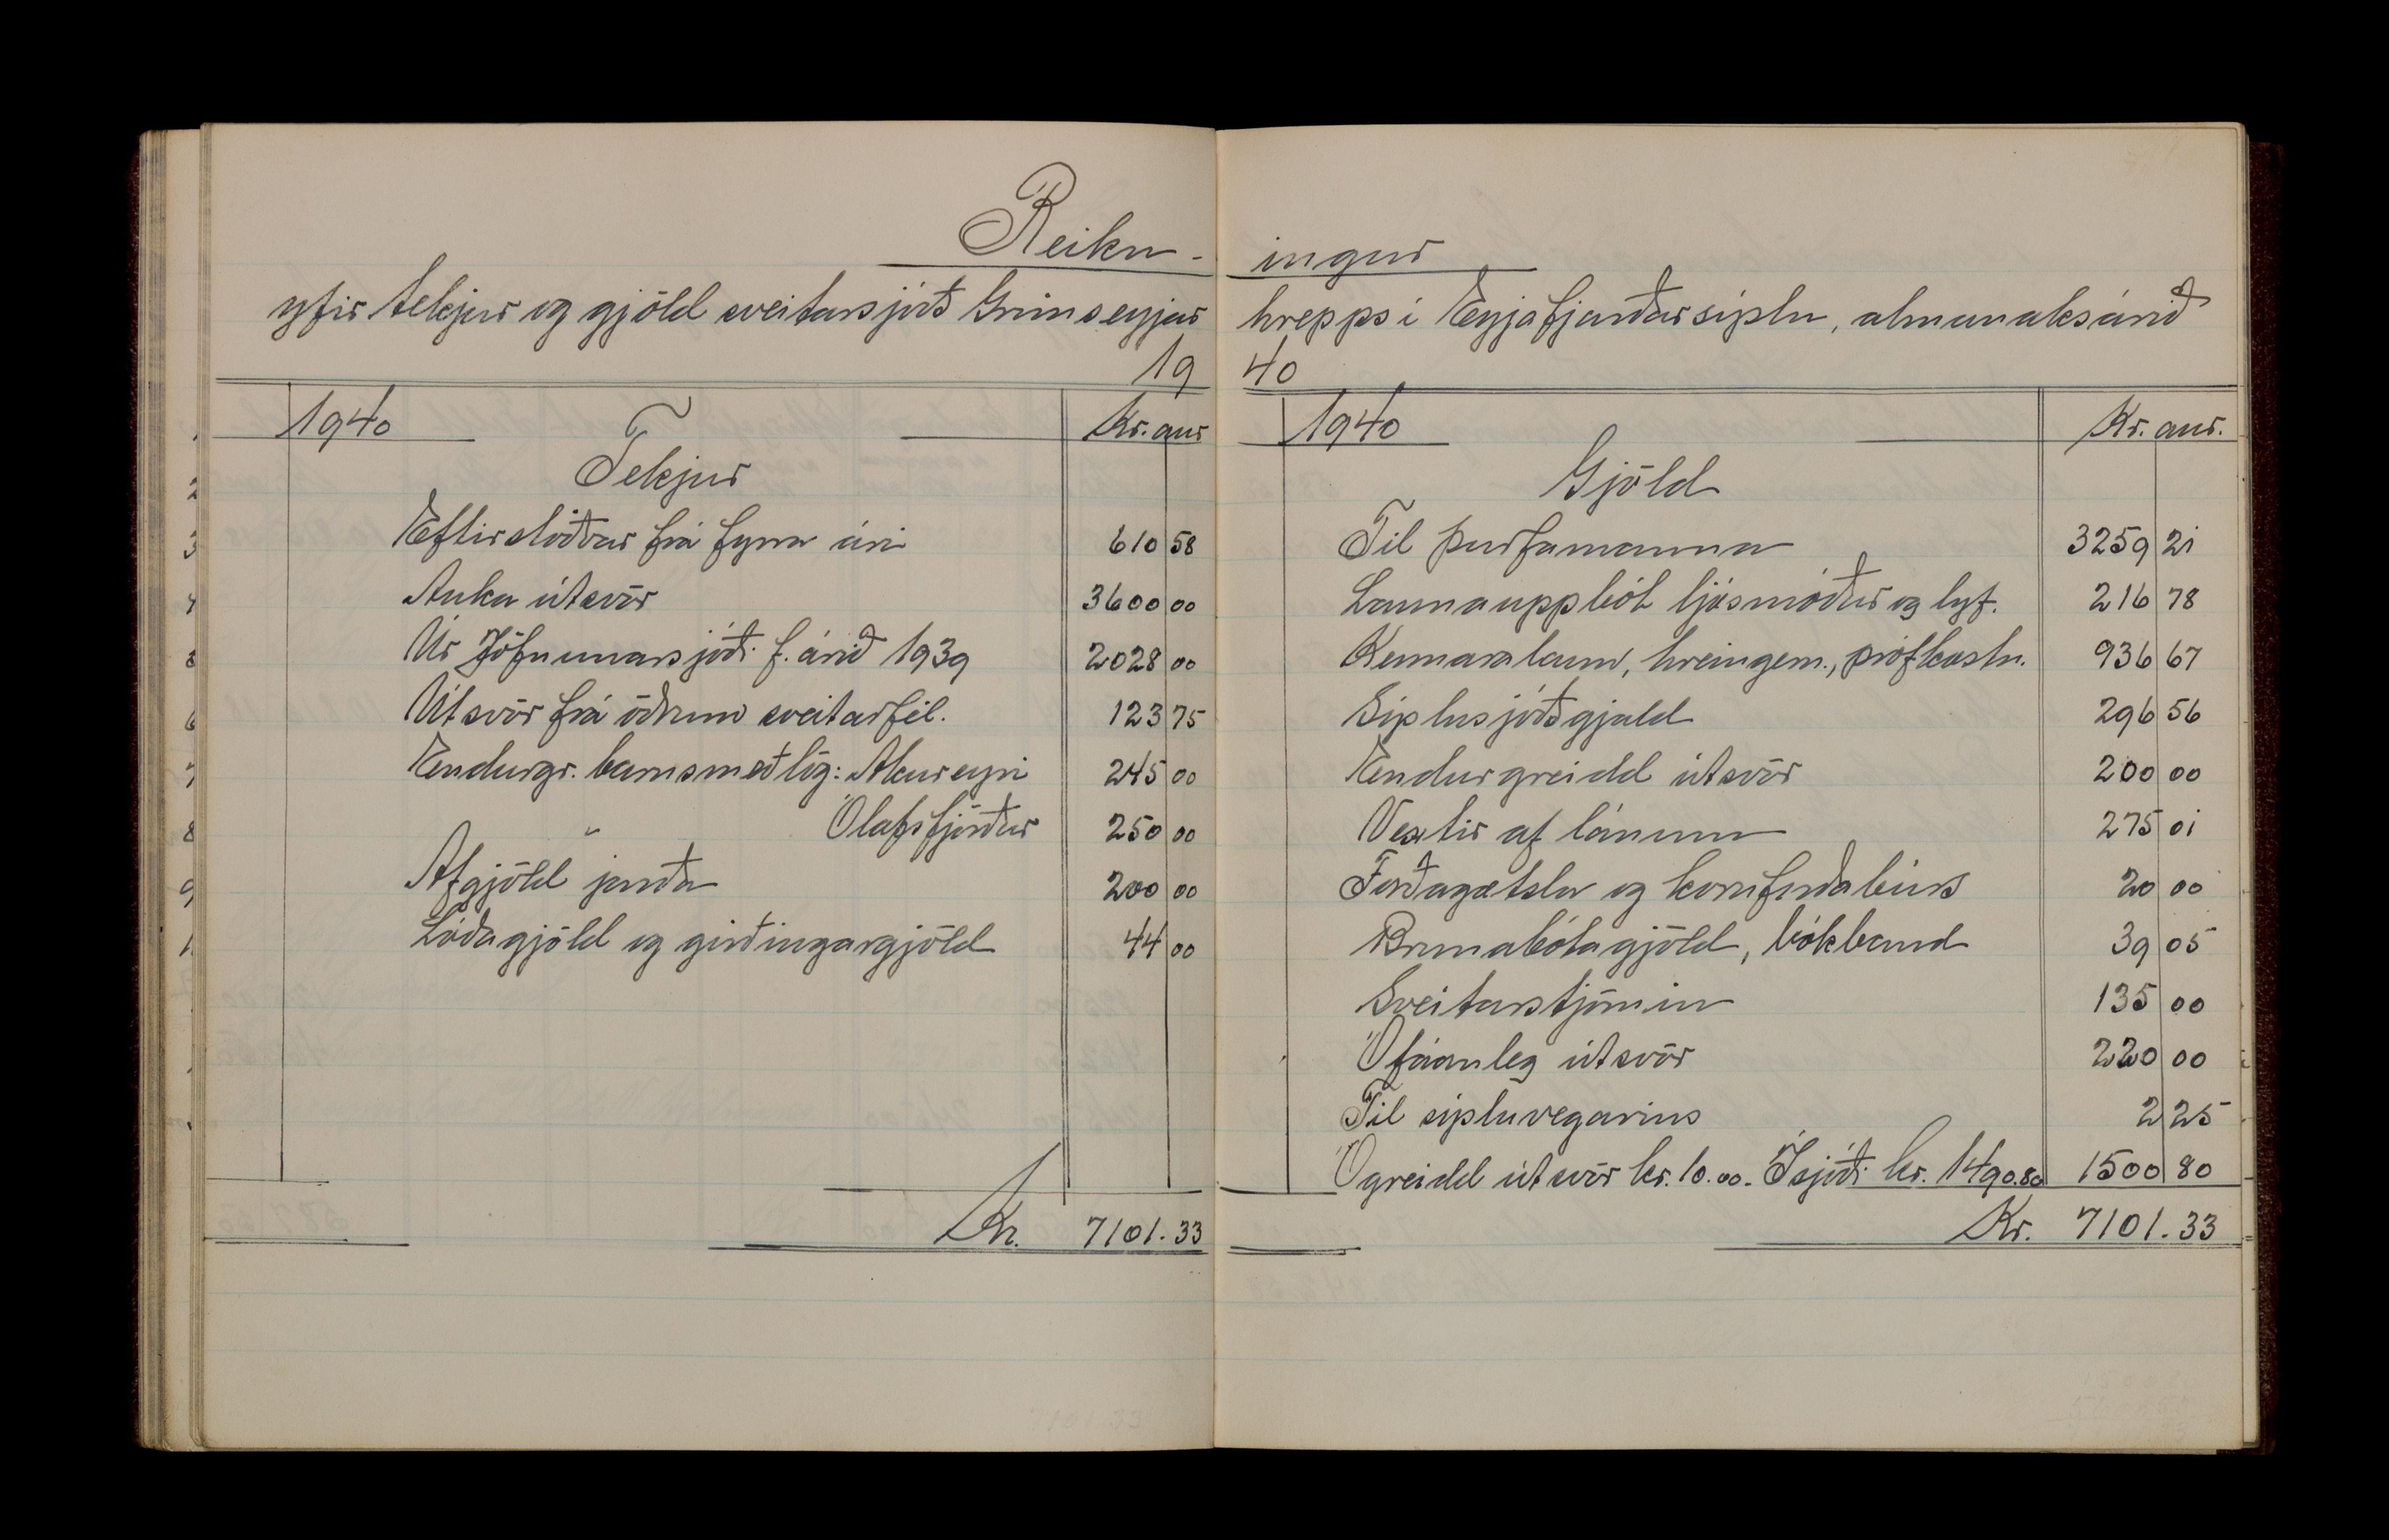 Reikn-ingur
yfir tekjur og gjöld sveitarsjóðs Grímseyjar hrepps í Eyjafjarðarsýslu, almanaksárið
1940
1940 Kr. aur
Tekjur
Eftirstöðvar frá fyrra ári 610 58
Auka útsvör 3600 00
Úr Jöfnunarsjóði f. árið 1939 2028 00
Útsvör frá öðrum sveitarfél. 123 75
Endurgr. barnsmeðlög: Akureyri 245 00
" Ólafsfjörður 250 00
Afgjöld jarða 200 00
Lóðagjöld og girðingargjöld 44 00
Kr. 7101.33
1940 Kr. aur.
Gjöld
Til þurfamanna 3259 21
Launauppbót ljósmóður og lyf. 216 78
Kennaralaun, hreingern., prófkostn. 936 67
Sýslusjóðsgjald 296 56
Endurgreidd útsvör 200 00
Vextir af lánum 275 01
Forðagætsla og kornforðabúrs 20 00
Brunabótagjöld, bókband 39 05
Sveitarstjórnin 135 00
Ófáanleg útsvör 220 00
Til sýsluvegarins 2 25
Ógreidd útsvör kr. 10.00. Í sjóði kr. 1490.80 1500 80
Kr. 7101.33